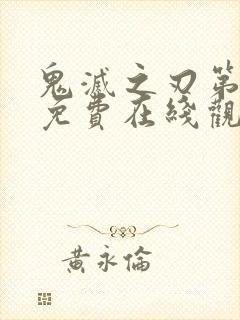 鬼滅之刃第
免費在綫觀
黃永倫